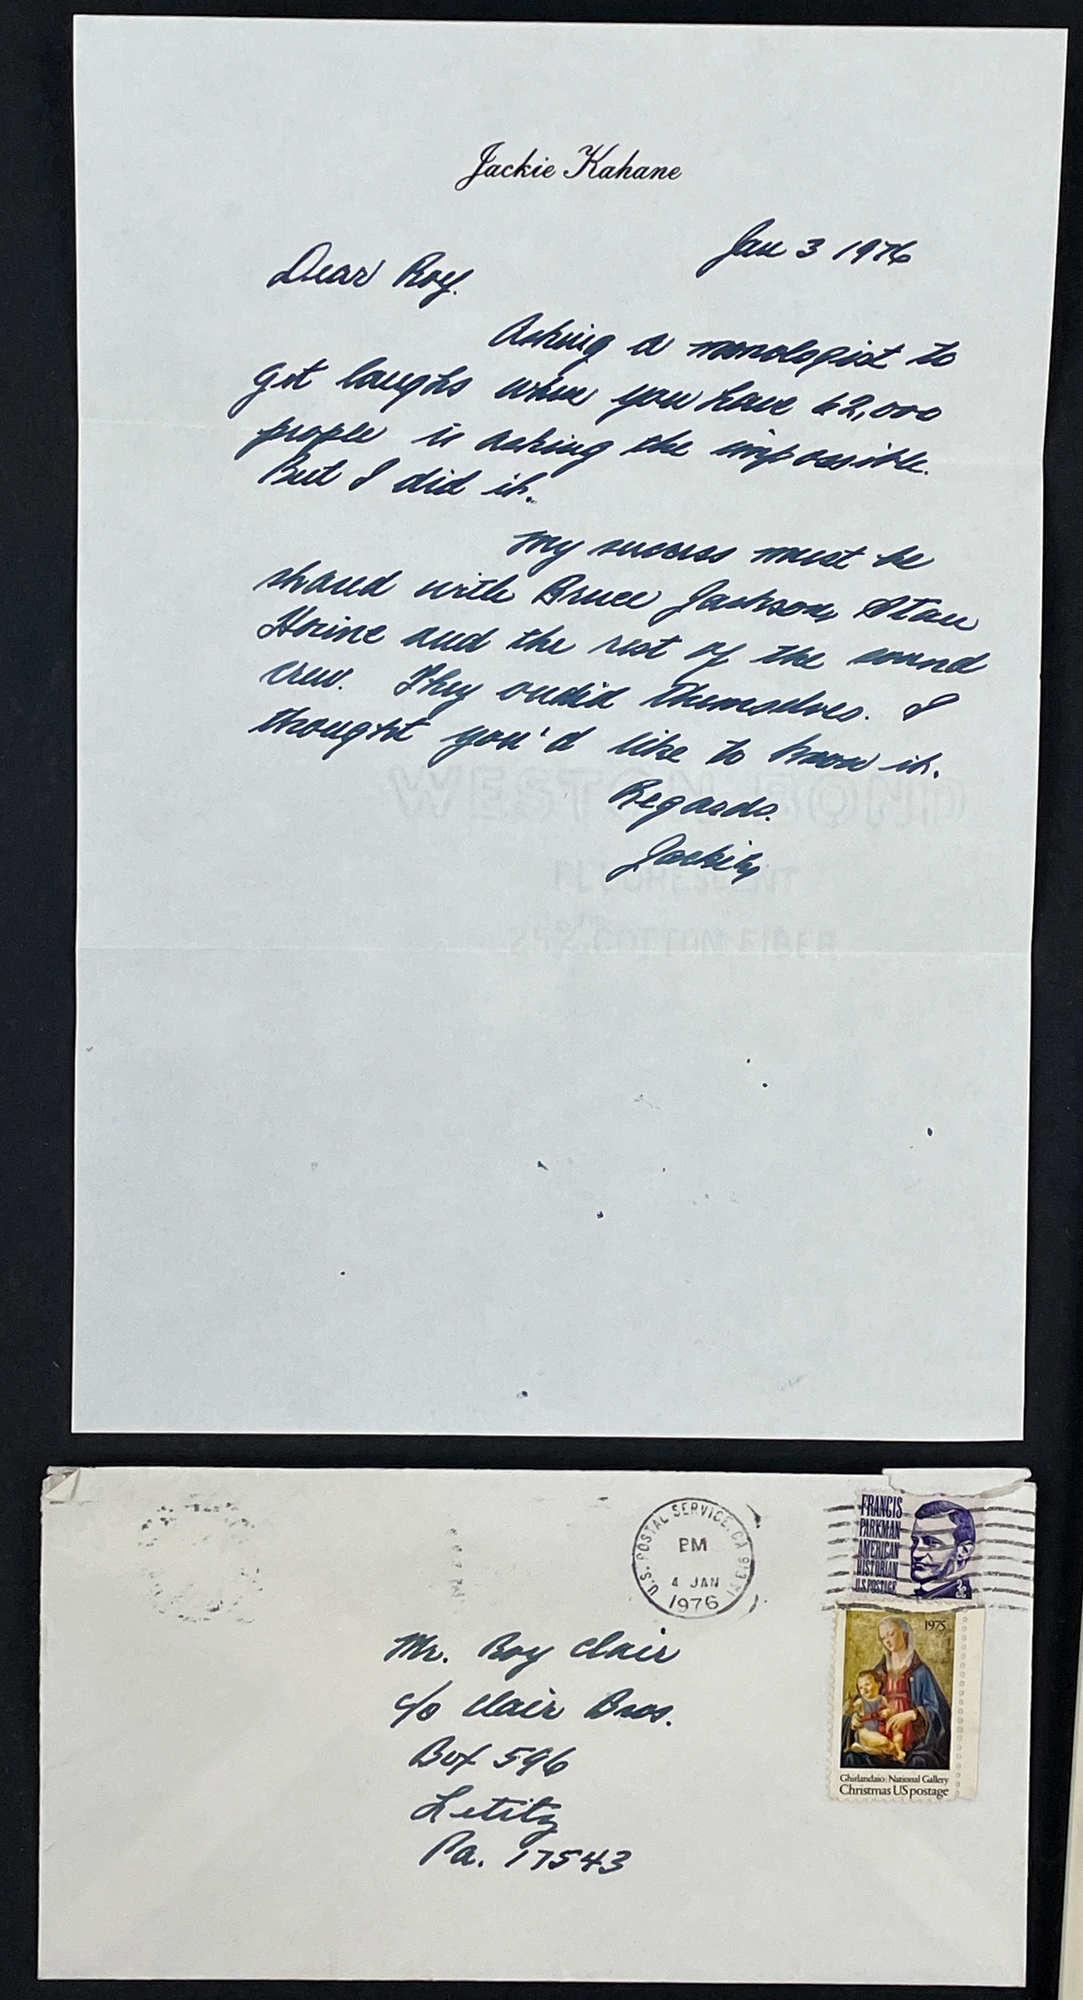 Jackie Kahane
Jan 3 1976
Dear Roy.
Asking a monologist to
get laughs when you have 62,000
people is asking the impossible.
But I did it.
My success must be
shared with Bruce Jackson, Stan
Horine and the rest of the sound
crew. They outdid themselves. I
thought you'd like to know it.
Regards.
Jackie
WESTON BOND
FLUORESCENT
25% COTTON FIBER
U.S. POSTAL SERVICE, CA
PM
4 JAN
1976
FRANCIS
PARKMAN
AMERICAN
HISTORIAN
U.S. POSTAGE
3c
1975
Ghirlandaio: National Gallery
Christmas US postage
Mr. Roy Clair
c/o Clair Bros.
Box 596
Letitz
Pa. 17543